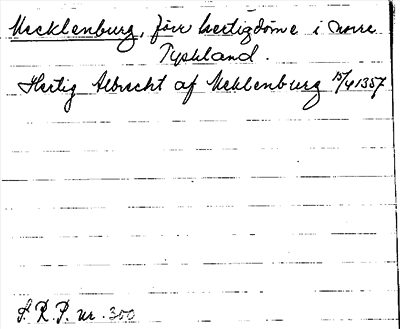 Mecklenburg, förr hertigdöme i norra
Tyskland.
Hertig Albrecht af Meklenburg 15/4 1357
S. R. P. nr. 300